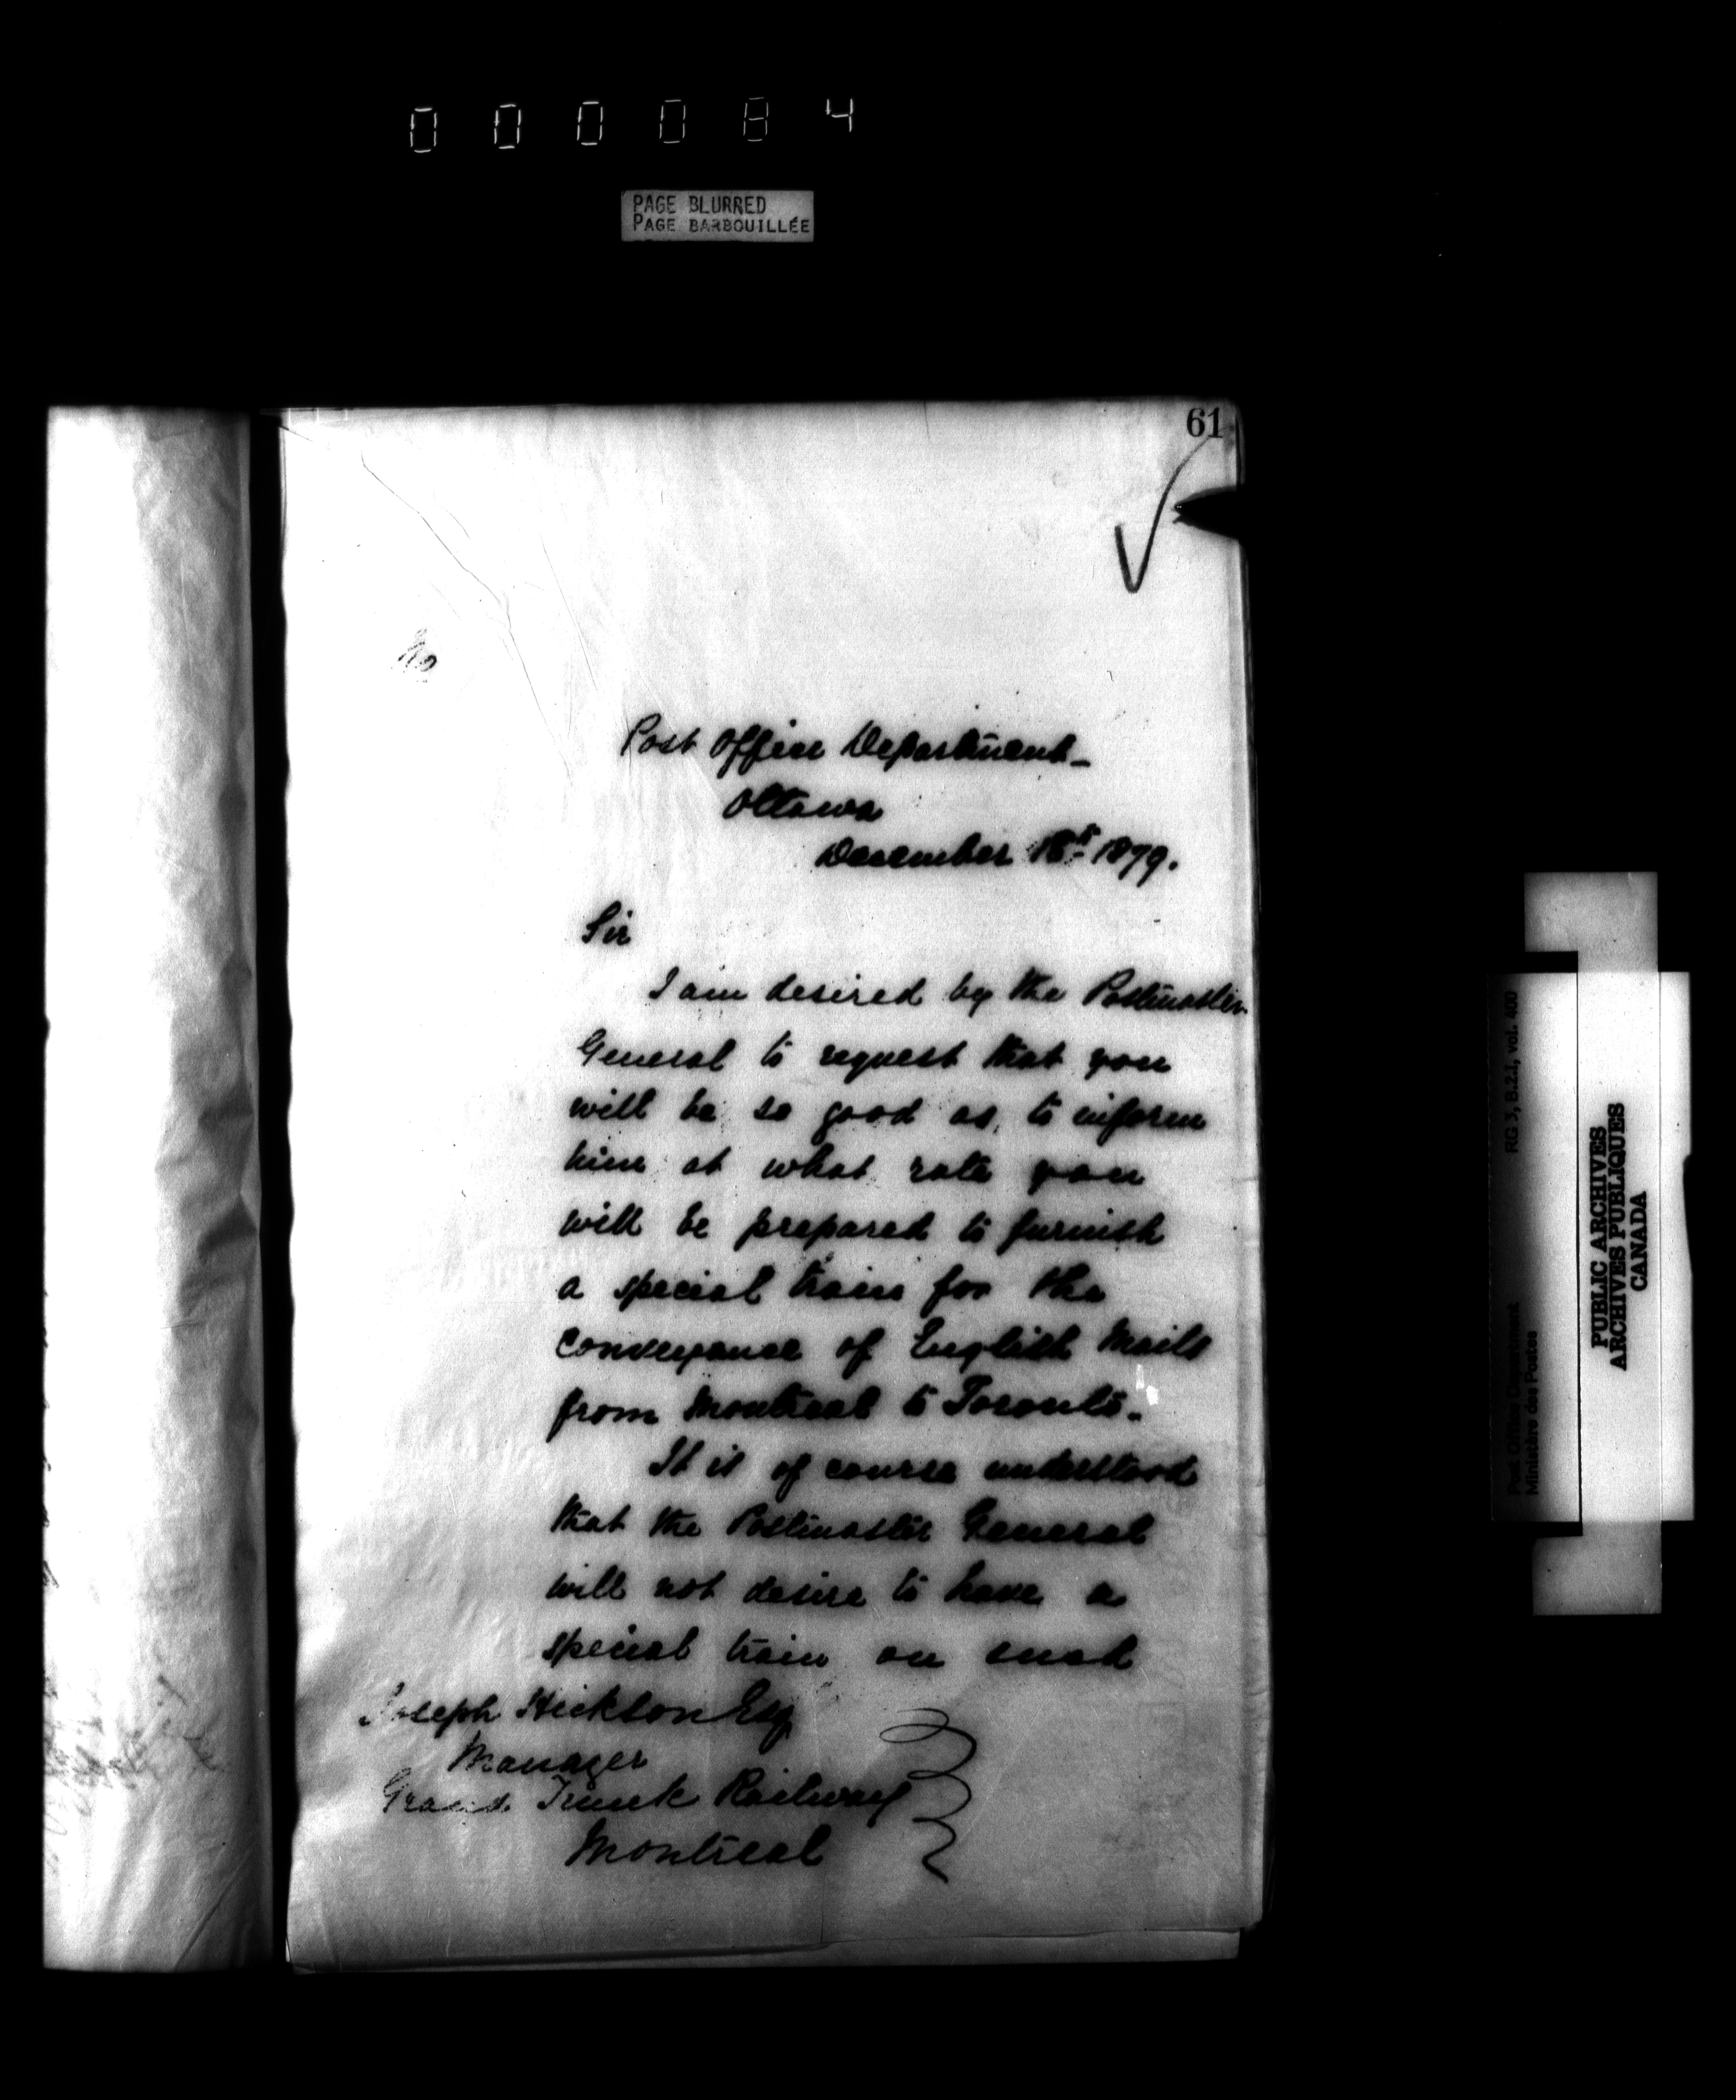 000084
PAGE BLURRED
PAGE BARBOUILLÉE
61
Post Office Department_
Ottawa
December 18th 1879.
Sir
I am desired by the Postmaster
General to request that you
will be so good as, to inform
him at what rate you
will be prepared to furnish
a special train for the
conveyance of English Mails
from Montreal to Toronto.
It is of course understood
that the Postmaster General
will not desire to have a
special train on such
Joseph Hickson Esq
Manager
Grand Trunk Railway
Montreal
RG 3, B.2.1, vol. 400
Post Office Department
Ministère des Postes
PUBLIC ARCHIVES
ARCHIVES PUBLIQUES
CANADA